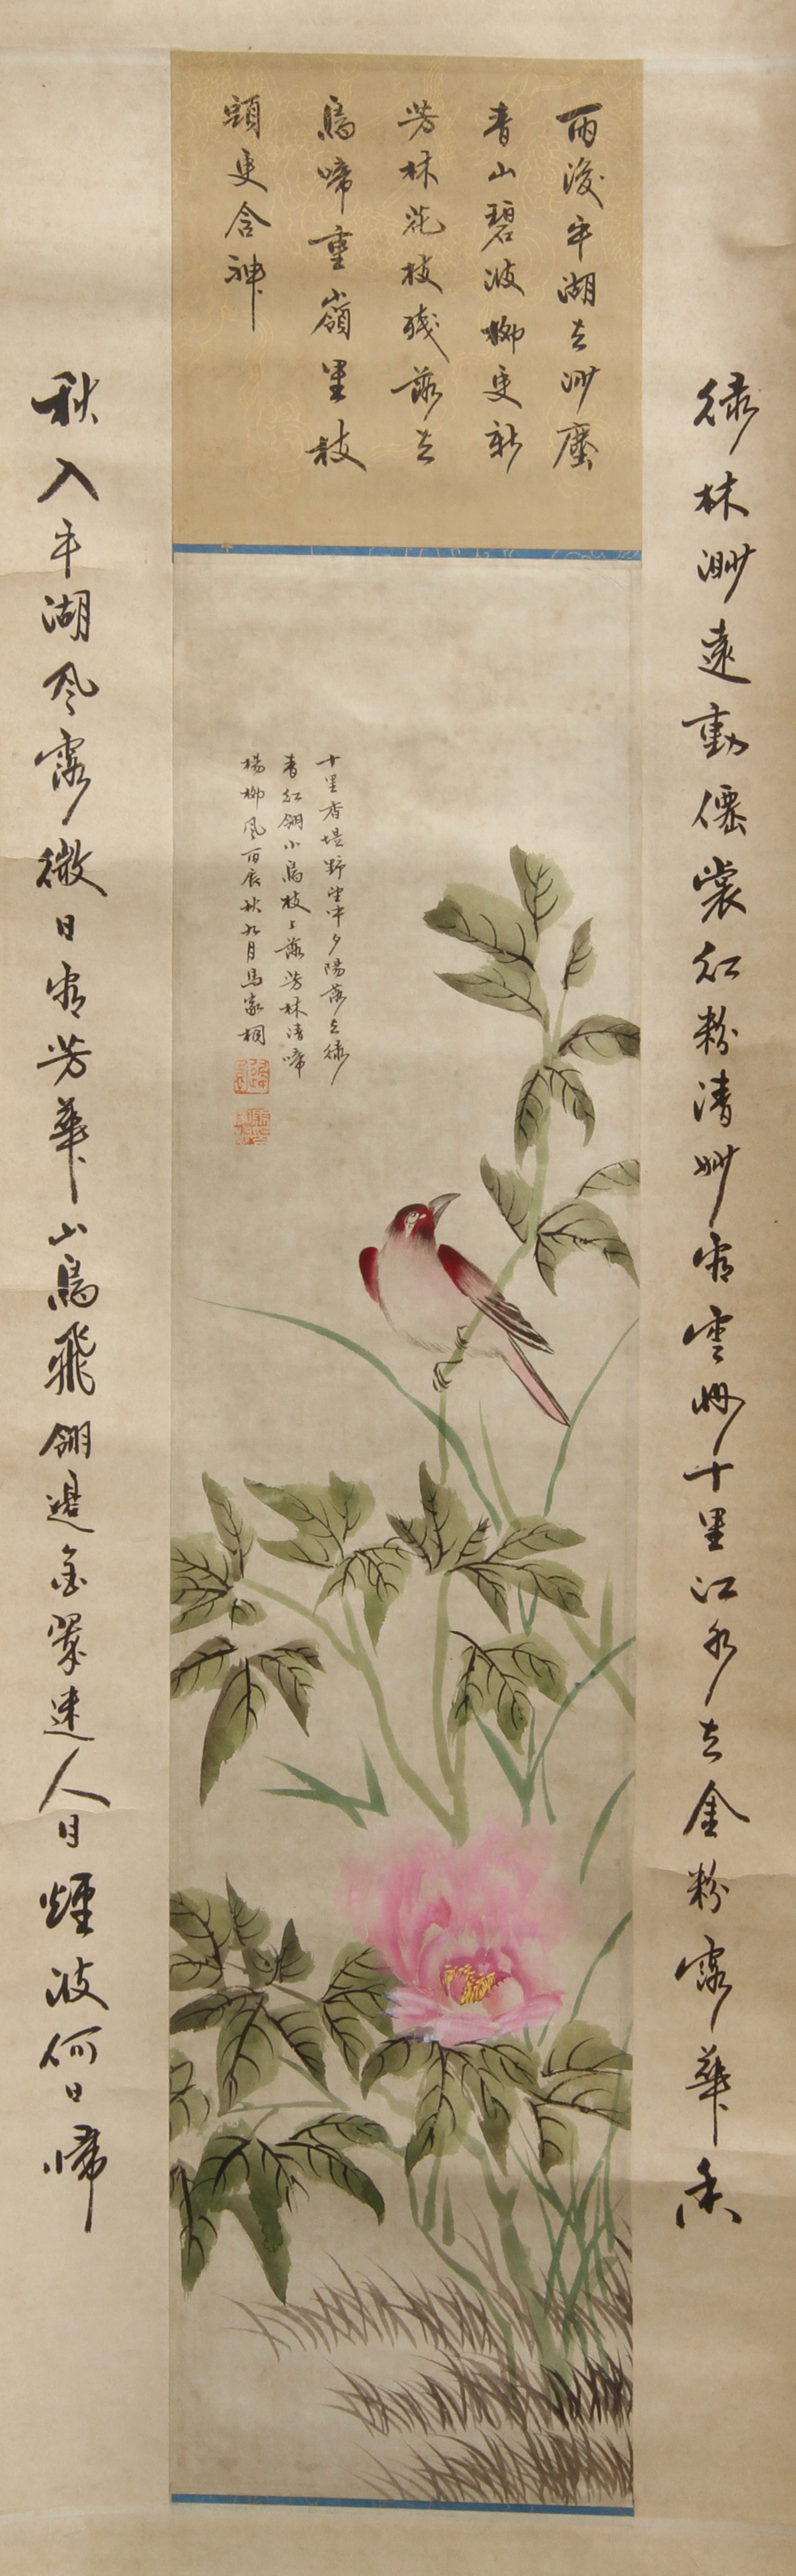 雨後平湖去沙塵
青山碧波柳更新
芳林花枝殘落去
鳥啼重嶺里枝
頭更含神
綠林渺遠動僊裳紅粉清妙有雲 十里江水去金粉露華香
十里香堤野望中夕陽落去綠
青紅翎小鳥枝上落芳林清啼
楊柳風丙辰秋九月馬家桐
秋入平湖風露微日有芳華山鳥飛翎邊金翠迷人目煙波何日歸